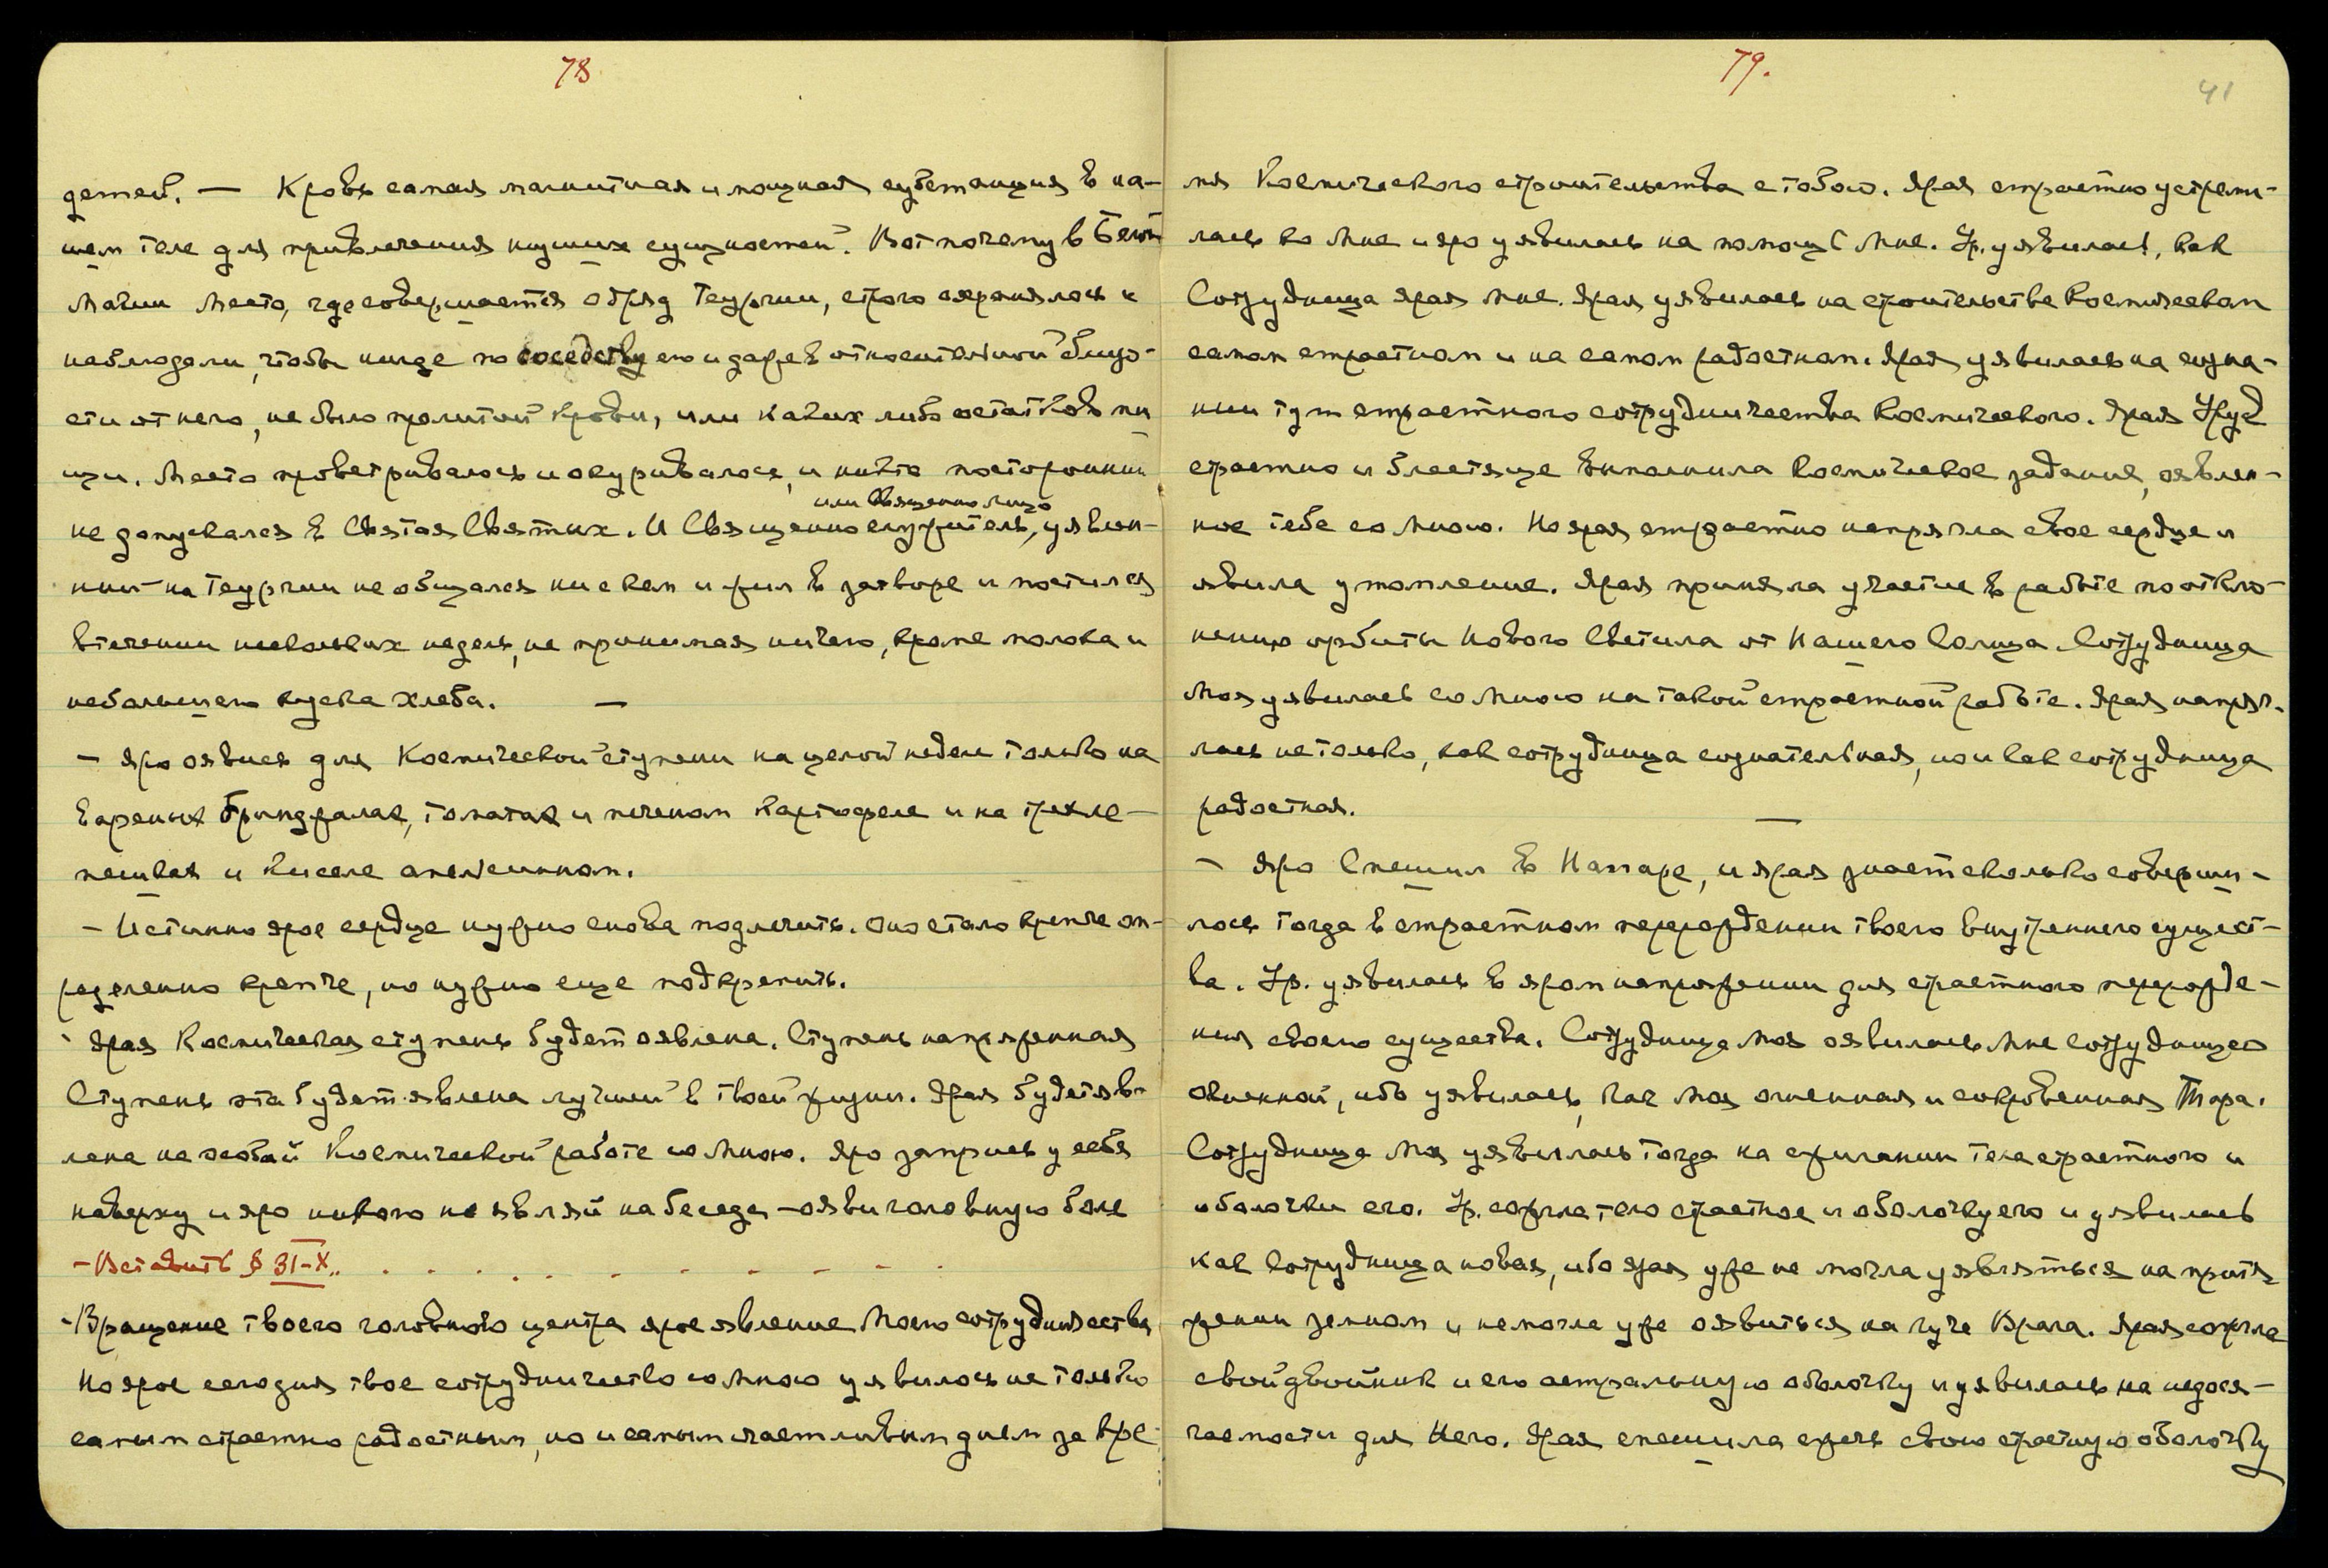 78
детей. — Кровь самая магнитная и мощная субстанция в на-
шем теле для привлечения низших сущностей. Вот почему в Белой
Магии место, где совершается обряд Теургии, строго охранялось и
наблюдали, чтобы нигде по соседству его и даже в относительной близо-
сти от него, не было пролитой крови, или каких либо остатков пи
щи. Место проветривалось и окуривалось, и никто посторонний
или Священно лицо
не допускался в Святая Святых. И Священнослужитель, уявлен-
ный на Теургии не общался ни с кем и жил в затворе и постился
втечении нескольких недель, не принимая ничего, кроме молока и
небольшего куска хлеба. —
— Яро оявись для Космической ступени на целой неделе только на
вареных бринджалах, томатах и печеном картофеле и на грехне-
пешках и киселе апельсинном.
— Истинно ярое сердце нужно снова подлечить. Оно стало крепче оп-
ределенно крепче, но нужно еще подкрепить.
- Ярая Космическая ступень будет оявлена. Ступень напряженная
Ступень эта будет явлена лучшей в твоей жизни. Ярая будет яв-
лена на особой Космической работе со Мною. Яро запрись у себя
наверху и яро никого не являй на беседе — ояви головную боль
— Вставить § 31-X.. . . . . . . . . . .
- Вращение твоего головного центра ярое явление Моего сотрудничества
Но ярое сегодня твое сотрудничество со Мною уявилось не только
самым страстно радостным, но и самым счастливым днем за вре-
79.
41
мя Космического строительства с тобою. Ярая страстно устреми-
лась ко Мне и яро уявилась на помощь Мне. Ур. уявилась, как
Сотрудница ярая Мне. Ярая уявилась на строительстве Космическом
самом страстном и на самом радостном. Ярая уявилась на созна-
нии тут страстного сотрудничества Космического. Ярая Урус
страстно и блестяще выполнила Космическое задание, оявлен-
ное тебе со Мною. Но ярая страстно напрягла свое сердце и
явила утомление. Ярая приняла участие в работе по откло-
нению орбиты Нового Светила от Нашего Солнца. Сотрудница
Моя уявилась со Мною на такой страстной работе. Ярая напряг-
лась не только, как сотрудница сознательная, но и как сотрудница
радостная. —
— Яро Спешил в Наггаре, и ярая знает сколько соверши-
лось тогда в страстном перерождении твоего внутреннего сущест-
ва. Ур. уявилась в яром напряжении для страстного перерожде-
ния своего существа. Сотрудница Моя оявилась Мне сотрудницей
огненной, ибо уявилась, как Моя огненная и сокровенная Тара.
Сотрудница Моя уявилась тогда на сжигании тела страстного и
оболочки его. Ур. сожгла тело страстное и оболочку его и уявилась
как Сотрудница новая, ибо ярая уже не могла уявляться на притя
жении земном и не могла уже оявиться на луче Врага. Ярая сожгла
свой двойник и его астральную оболочку и уявилась на недося-
гаемости для Него. Ярая спешила сжечь свою страстную оболочку